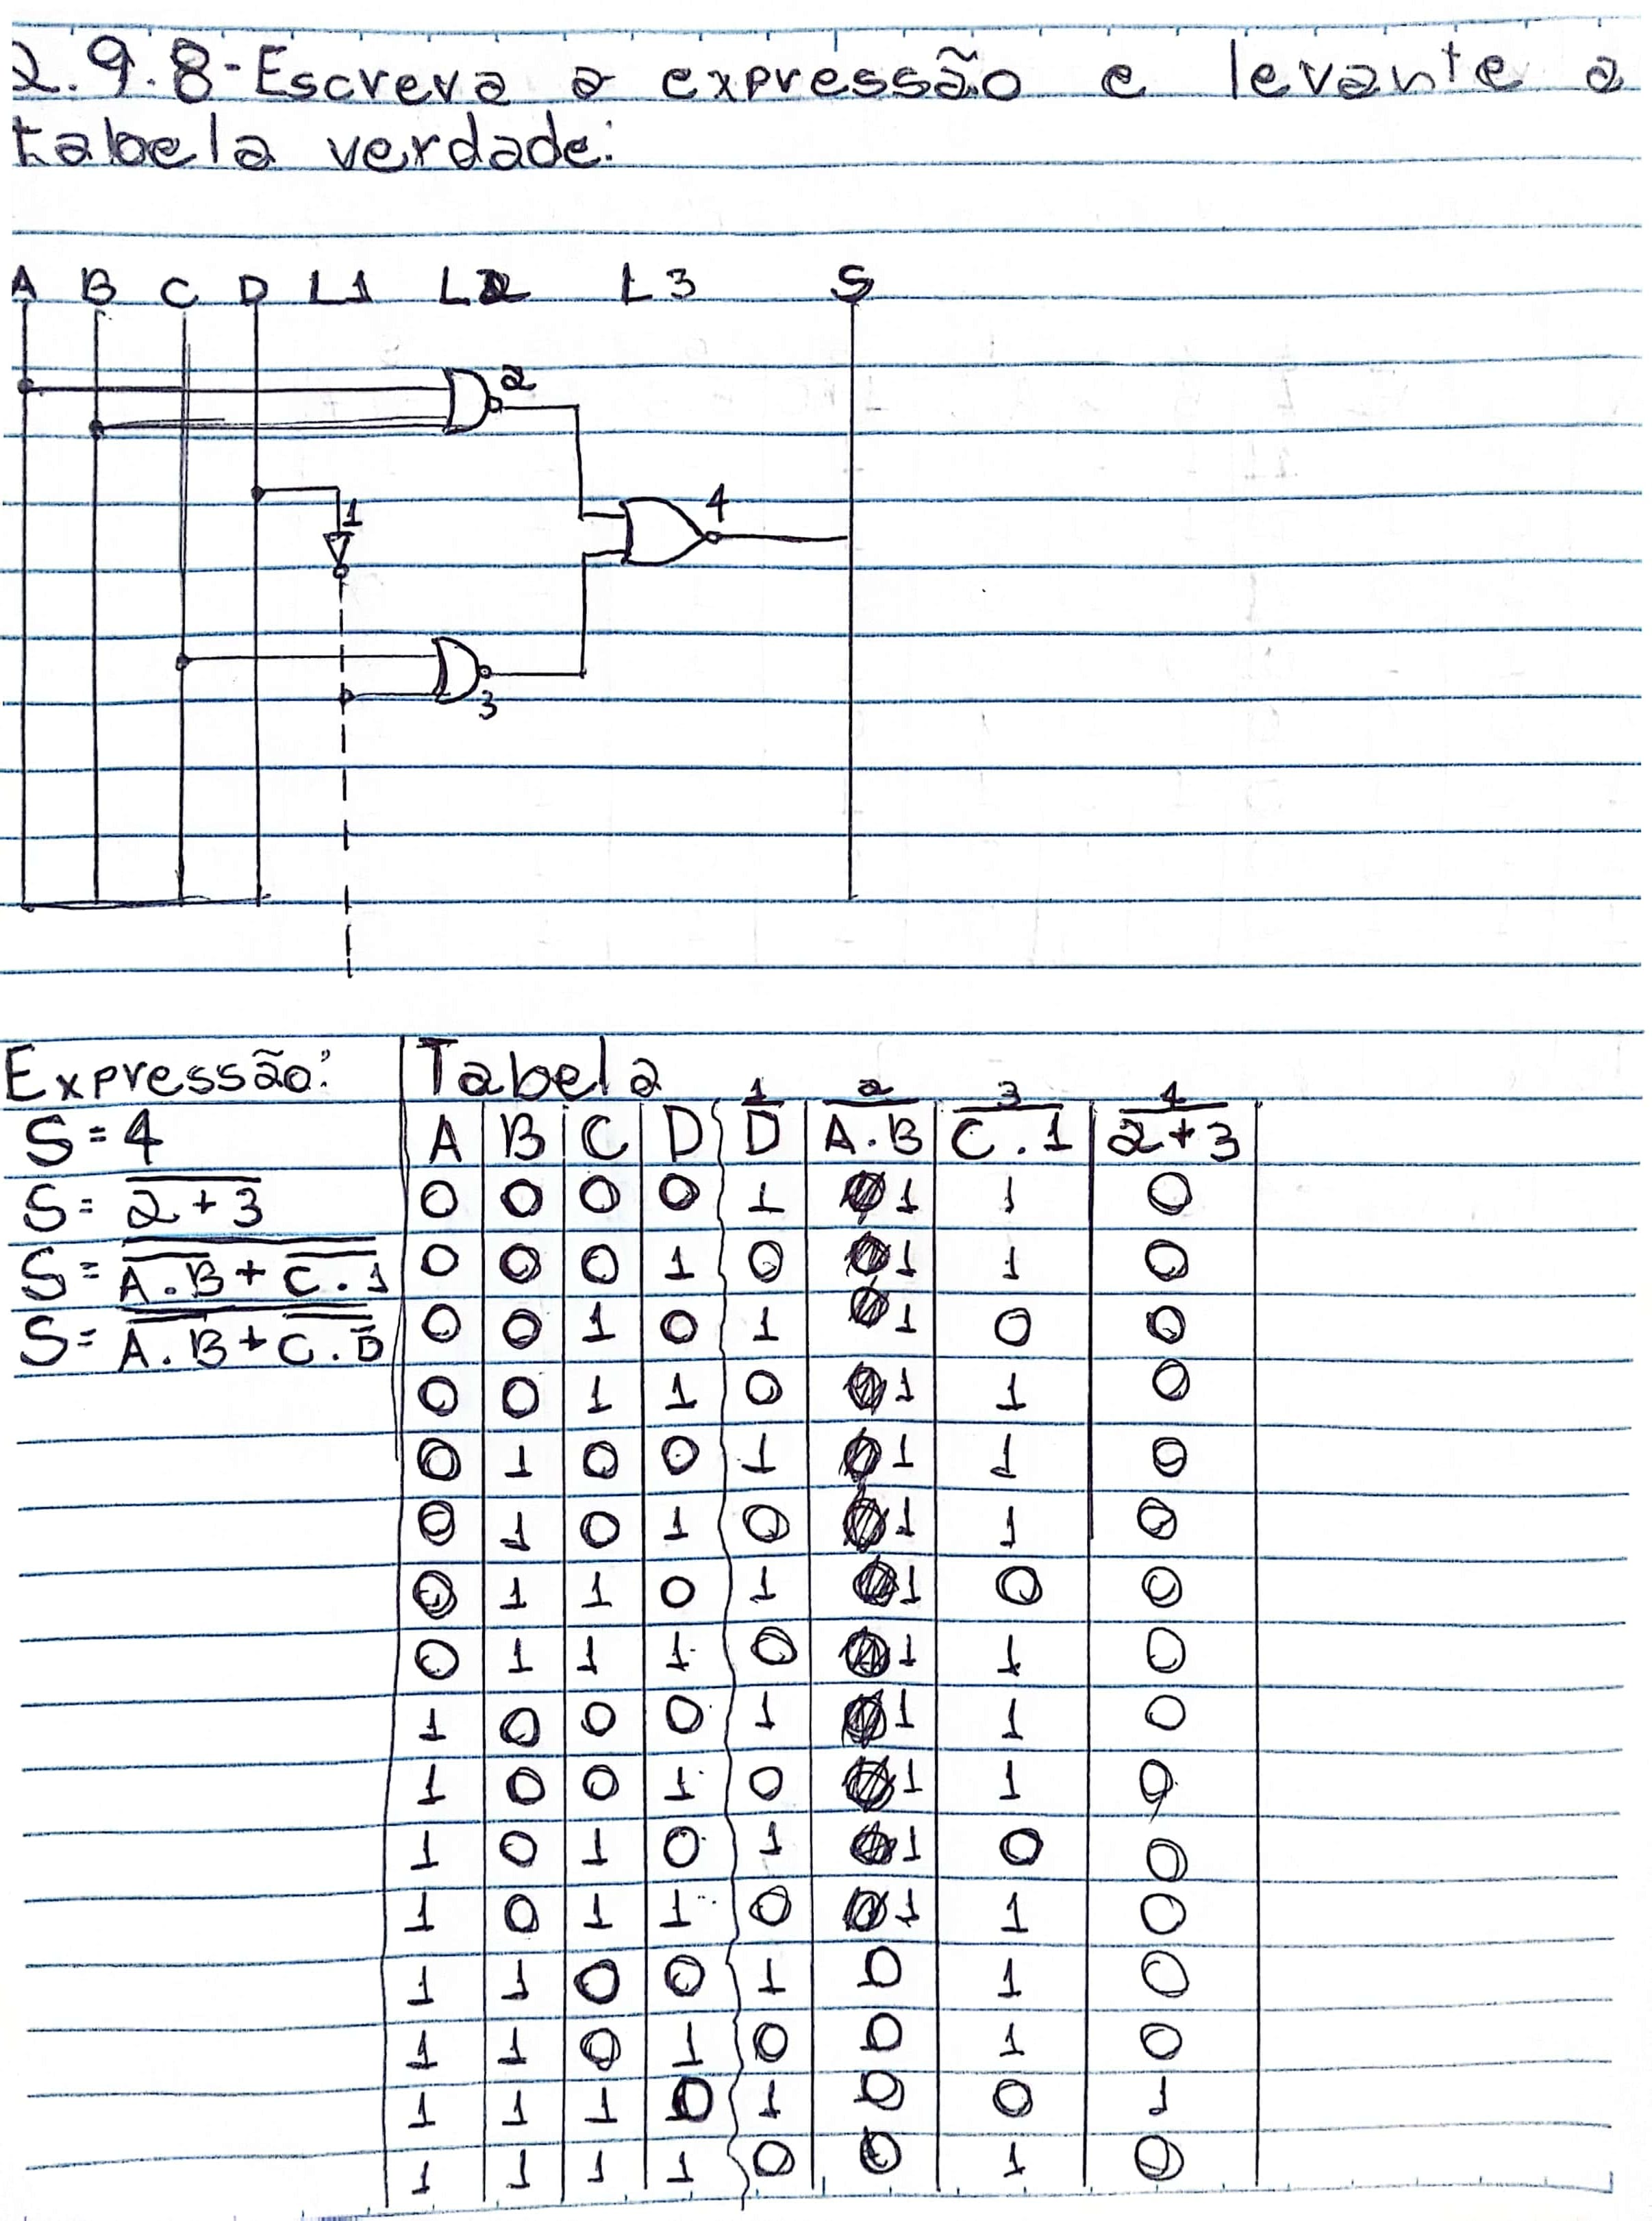 2.9.8-Escreva a expressão e levante a
tabela verdade:
A B C D L1 L2 L3 S
2
4
1
3
Expressão: Tabela
1 2 3 4
S=4 A B C D D̅ A.B C.1 2+3
S= 2+3 0 0 0 0 1 1 1 0
S= A.B+C.1 0 0 0 1 0 1 1 0
S= A.B+C.D̅ 0 0 1 0 1 1 0 0
0 0 1 1 0 1 1 0
0 1 0 0 1 1 1 0
0 1 0 1 0 1 1 0
0 1 1 0 1 1 0 0
0 1 1 1 0 1 1 0
1 0 0 0 1 1 1 0
1 0 0 1 0 1 1 0
1 0 1 0 1 1 0 0
1 0 1 1 0 1 1 0
1 1 0 0 1 0 1 0
1 1 0 1 0 0 1 0
1 1 1 0 1 0 0 1
1 1 1 1 0 0 1 0